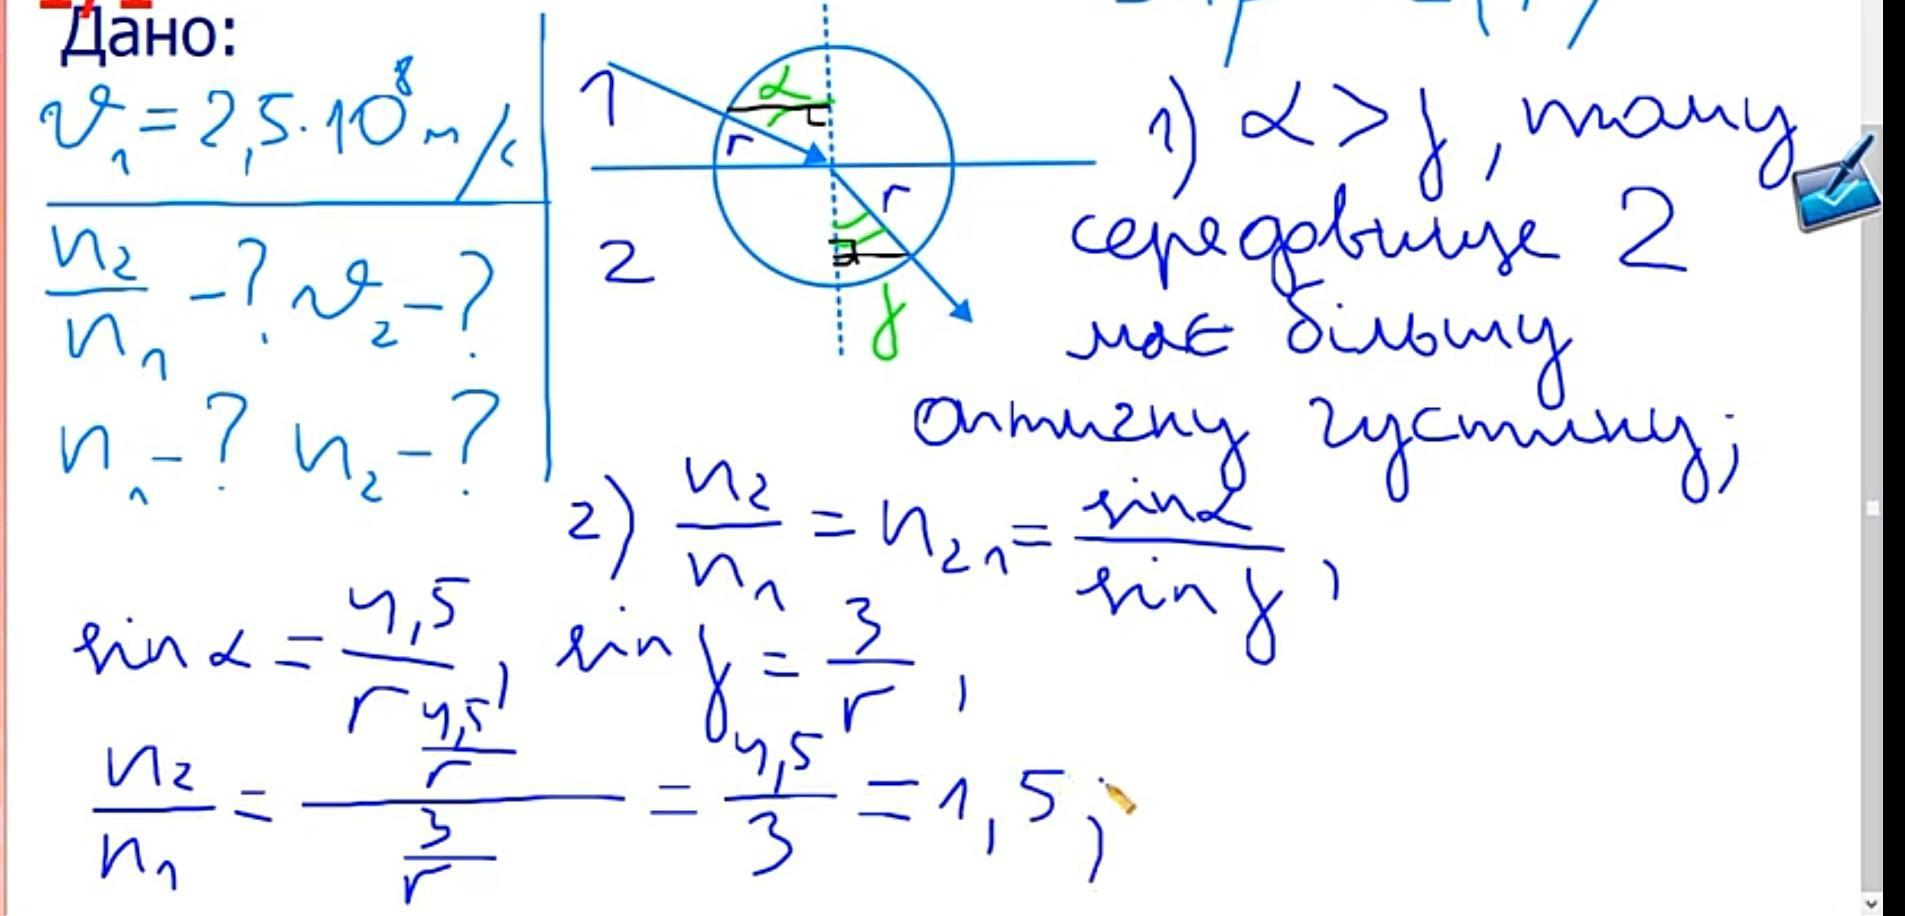 Дано:
υ₁ = 2,5·10⁸ м/с
n₂/n₁ - ? υ₂ - ?
n₁ - ? n₂ - ?
1
α
r
r
2
γ
1) α > γ, тому
середовище 2
має більшу
оптичну густину;
2) n₂/n₁ = n₂₁ = sin α / sin γ,
sin α = 4,5/r, sin γ = 3/r,
n₂/n₁ = (4,5/r)/(3/r) = 4,5/3 = 1,5;